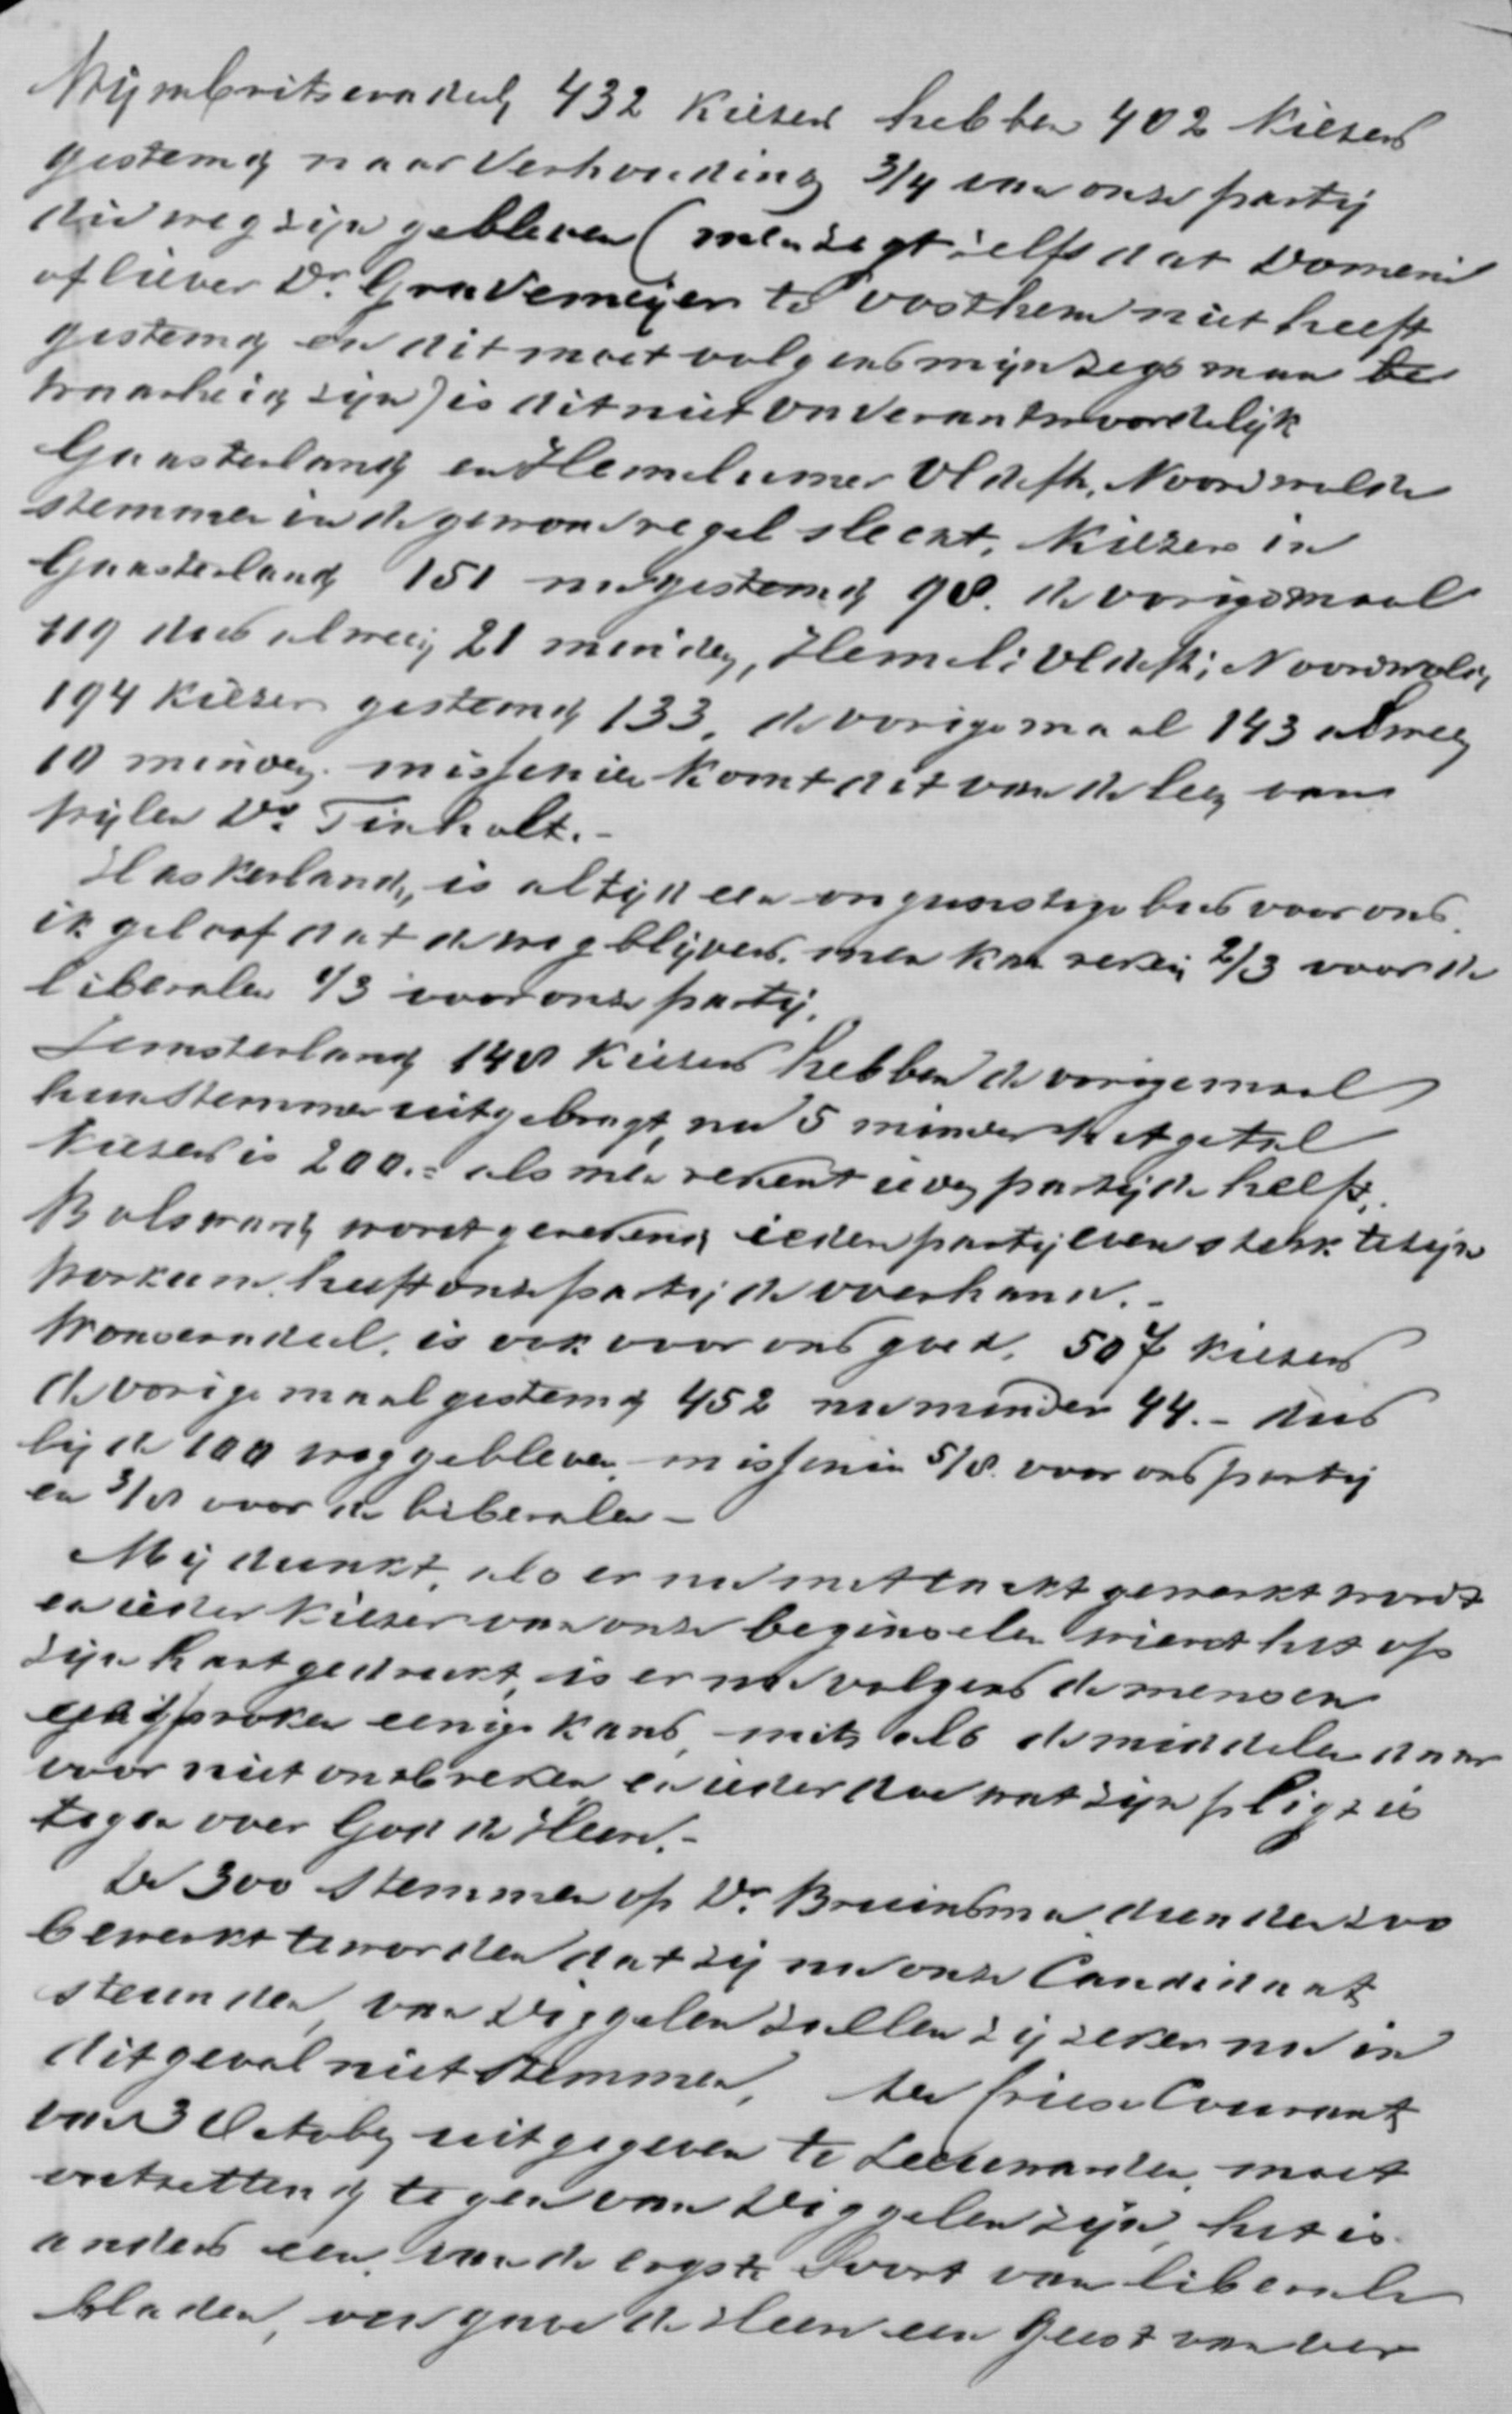 Wijmbritseradeel 432 Kiezers hebben 402 Kiezers
gestemd naar Verhouding 3/4 van onze partij
die weg zijn gebleven (men zegt zelfs dat Domeni
of liever Ds. Gravemeijer te Oosthem niet heeft
gestemd en dit moet volgens mijn zegsman be
waarheid zijn) is dit niet onverantwoordelijk
Gaasterland en Hemelumer Oldefh. Noordwolde
stemmen in de gewone regel slecht, Kiezers in
Gaasterland 151 nu gestemd 98. de vorigemaal
119 dus alweer 21 minder, Hemel: Oldefh; Noordwold,
194 Kiezers gestemd 133, de vorige maal 143 alweer
10 minder. misschien komt dit van de leer van
wijlen Ds. Tinholt.-
Haskerland, is altijd een ongunstige bus voor ons.
ik geloof dat de wegblijvers. men kan reken 2/3 voor de
liberalen 1/3 voor onze partij.
Lemsterland 148 Kiezers hebben de vorigemaal
hun stemmen uitgebragt, nu 5 minder het getal
Kiezers is 200.= als men rekent ieder partij de helft.
Bolsward wordt gerekend ieder partij even sterk te zijn
Workum. heeft onze partij de overhand.-
Wonseradeel. is ook voor ons goed, 507 kiezers
de vorige maal gestemd 452 nu minder 44.- dus
bij de 100 weggebleven, misschien 5/8. voor ons partij
en 3/8 voor de liberalen -
Mij dunkt, als er nu met tackt gewerkt wordt
en ieder Kiezer van onze beginselen wierd het op
zijn hart gedrukt, is er nu volgens de mensen
gesproken eenige kans, mits als de middelen daar
voor niet ontbreken, en ieder doe wat zijn pligt is
tegen over God de Heere.-
De 300 stemmen op Dr. Bruinsma dienden zoo
bewerkt te worden dat zij nu onze Candidaat
steunden, van Diggelen zullen zij zeker nu in
dit geval niet stemmen, de friese Courant
van 3 October uitgegeven te Leeuwarden, moet
ontzettend tegen van Diggelen zijn, het is
anders een van de ergste Soort van liberale
bladen, ons gave de Heere een Geest van ver